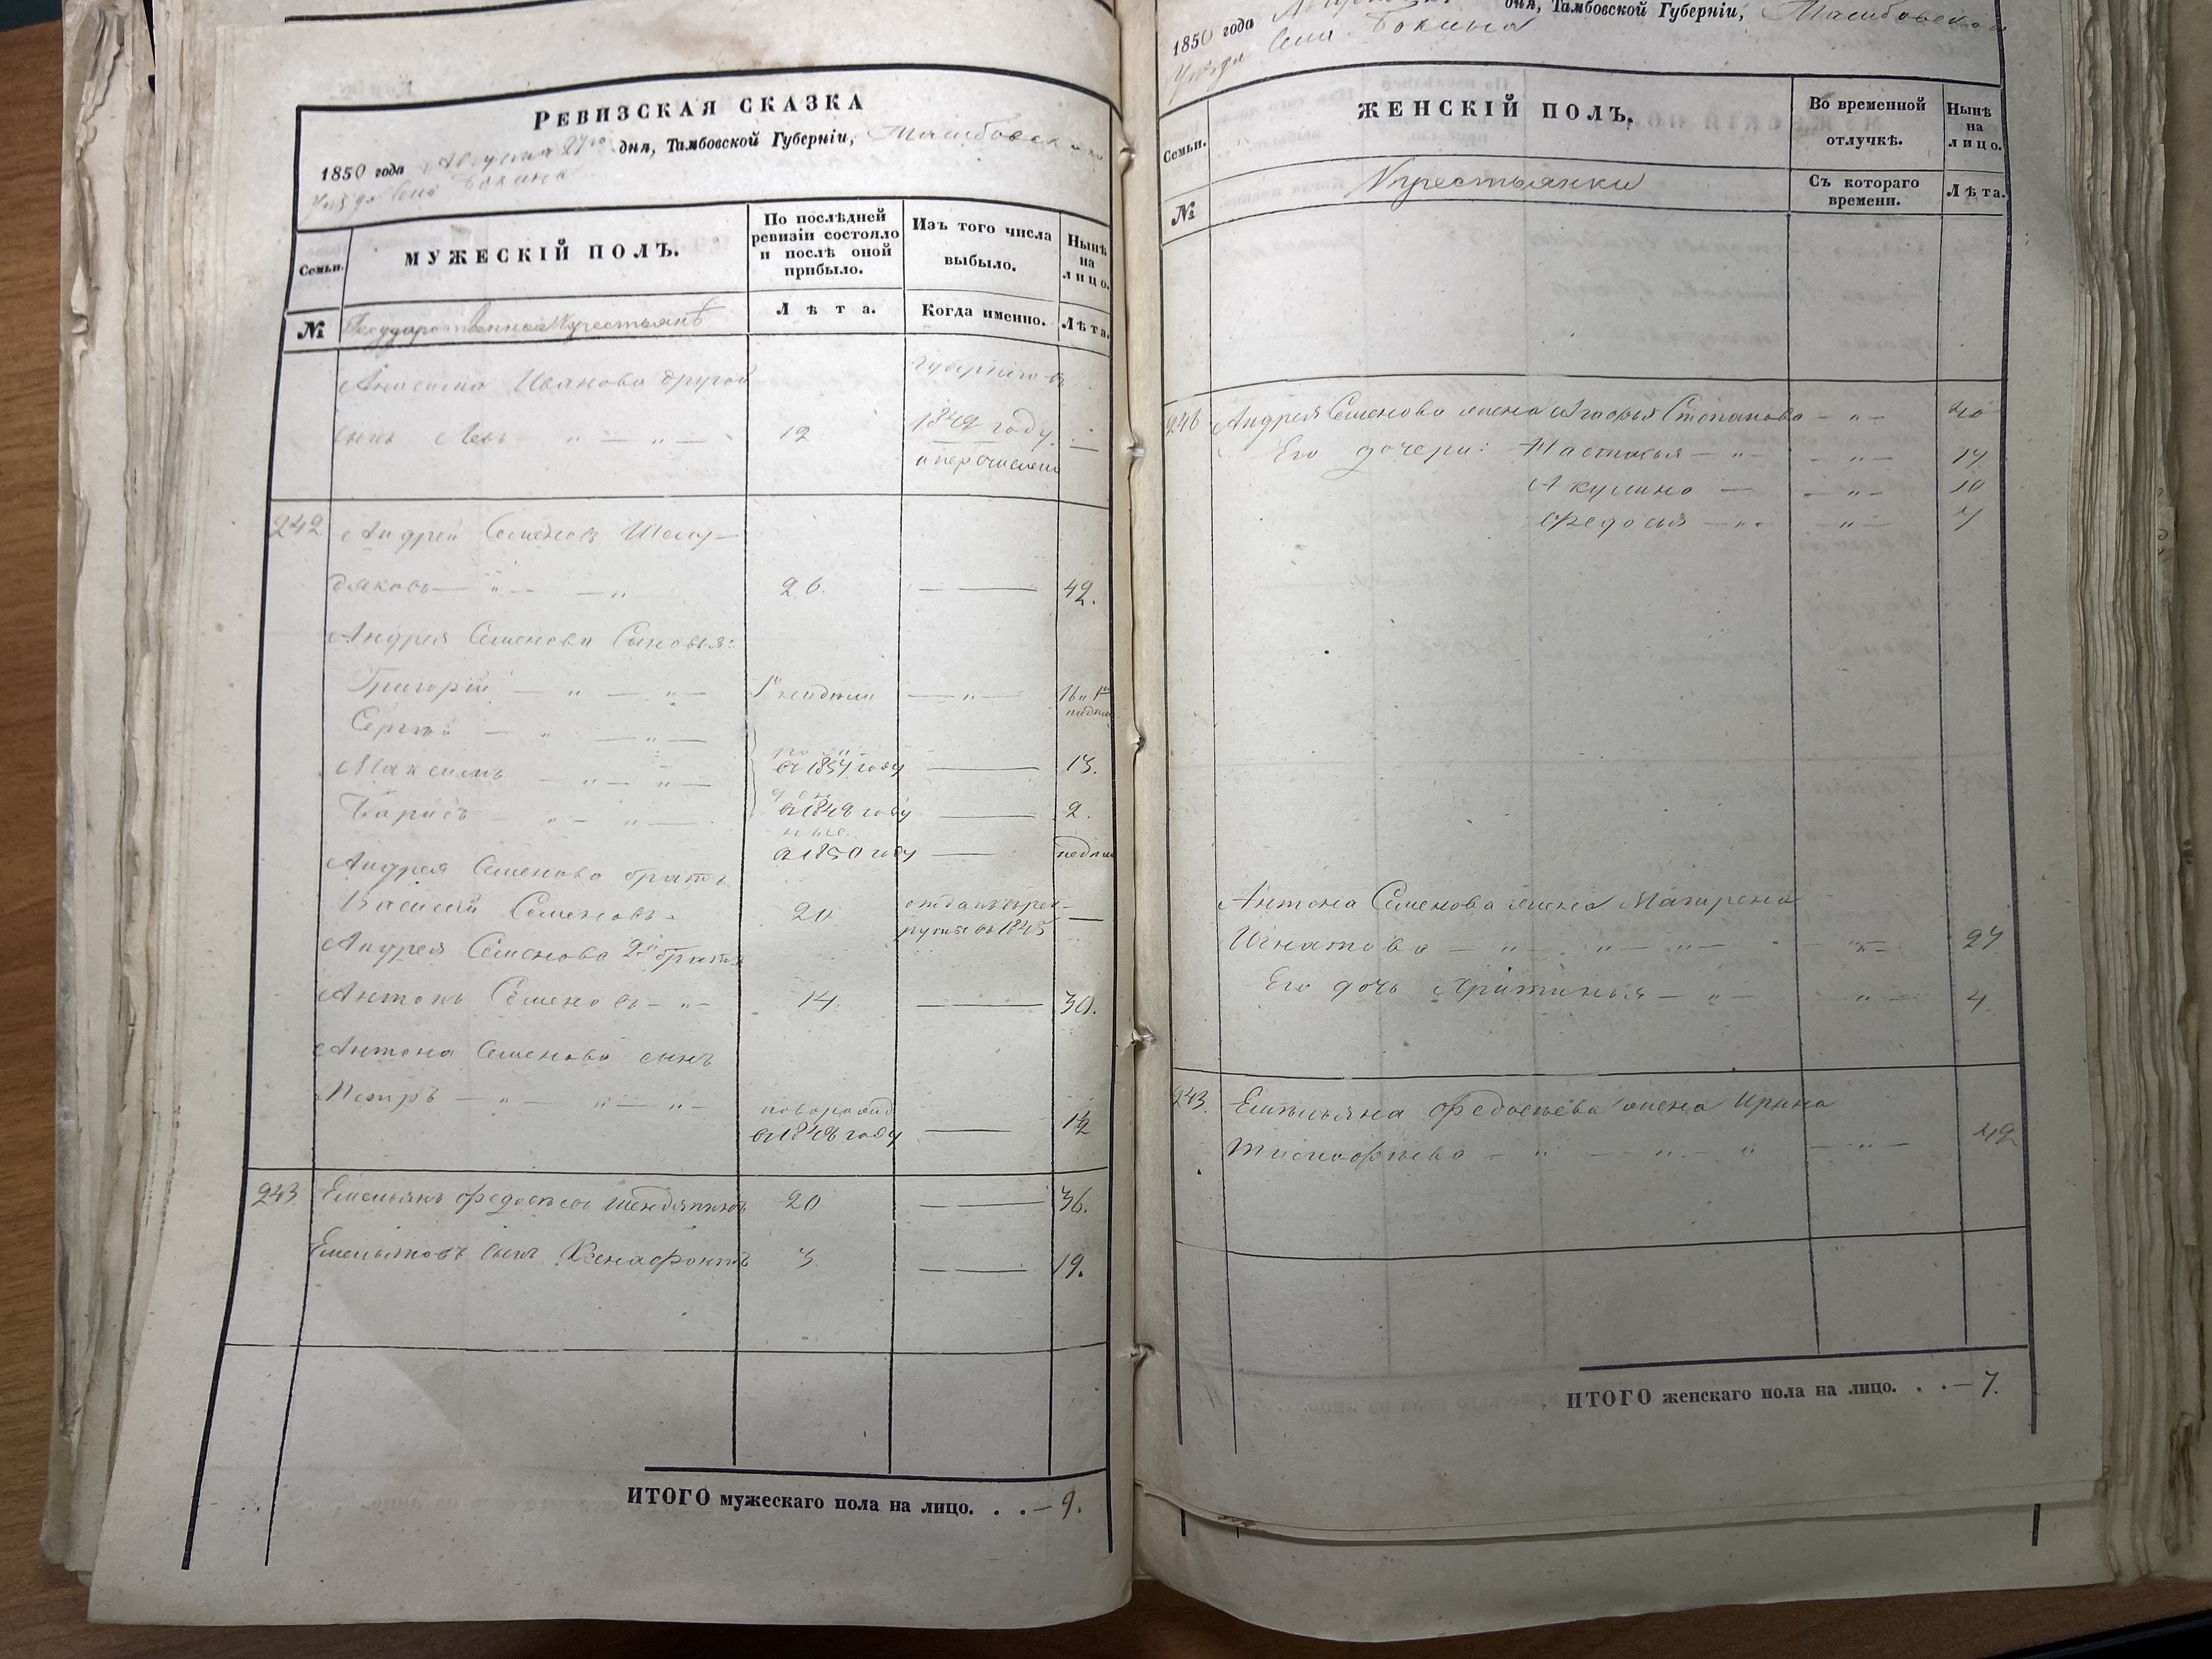 РЕВИЗСКАЯ СКАЗКА
1850 года Августа 27го дня, Тамбовской Губерніи, Тамбовскаго
Уѣзда Села Бокина
Семьи.
МУЖЕСКІЙ ПОЛЪ.
По послѣдней ревизіи состояло и послѣ оной прибыло.
Изъ того числа выбыло.
Нынѣ на лицо.
№
Государственные Крестьянѣ
Лѣта.
Когда именно.
Лѣта.
Иванова другой губернію въ
сынъ Левъ — " — " — 12 1842 году. —
и перечисленъ
242 Андрей Семеновъ Шелу-
дяковъ — " — — " — 26. — — 42.
Андрея Семенова Сыновья:
Григорій — " — " — — " — 16
Сергѣй — " — " —
Максимъ — " — " — въ 1837 году — 13.
Барисъ — " — " — въ 1848 году — 2.
въ 1850 году — недѣли
Андрея Семенова братъ
Василій Семеновъ отданъ въ рек-
руты въ 1845 —
Андрея Семенова 2й братъ
Антонъ Семеновъ — " — 14. — 30.
Антона Семенова сынъ
Петръ — " — " — " — новорожд
въ 1848 году — 1½
243 Емельянъ Федосѣевъ 20 — 36.
Емельяновъ сынъ Ксенафонтъ 3. — 19.
ИТОГО мужескаго пола на лицо. . . — 9.
1850 года дня, Тамбовской Губерніи, Тамбовскаго
Уѣзда Села Бокина
Семьи.
ЖЕНСКІЙ ПОЛЪ.
Во временной отлучкѣ.
Нынѣ на лицо.
№
Крестьянки
Съ котораго времени.
Лѣта.
Андрея Семенова жена Агафья Степанова — " — 40
Его дочери: Настасья — " — — " — 14
Акулина — — " — 10
Федосья — " — — " — 7
Антона Семенова жена Матрена
Игнатова — " — " — " — — " — 27
Его дочь — " — — " — 4.
243. Емельяна Федосѣева жена Ирина
— " — " — " — " — 42
ИТОГО женскаго пола на лицо. . . — 7.